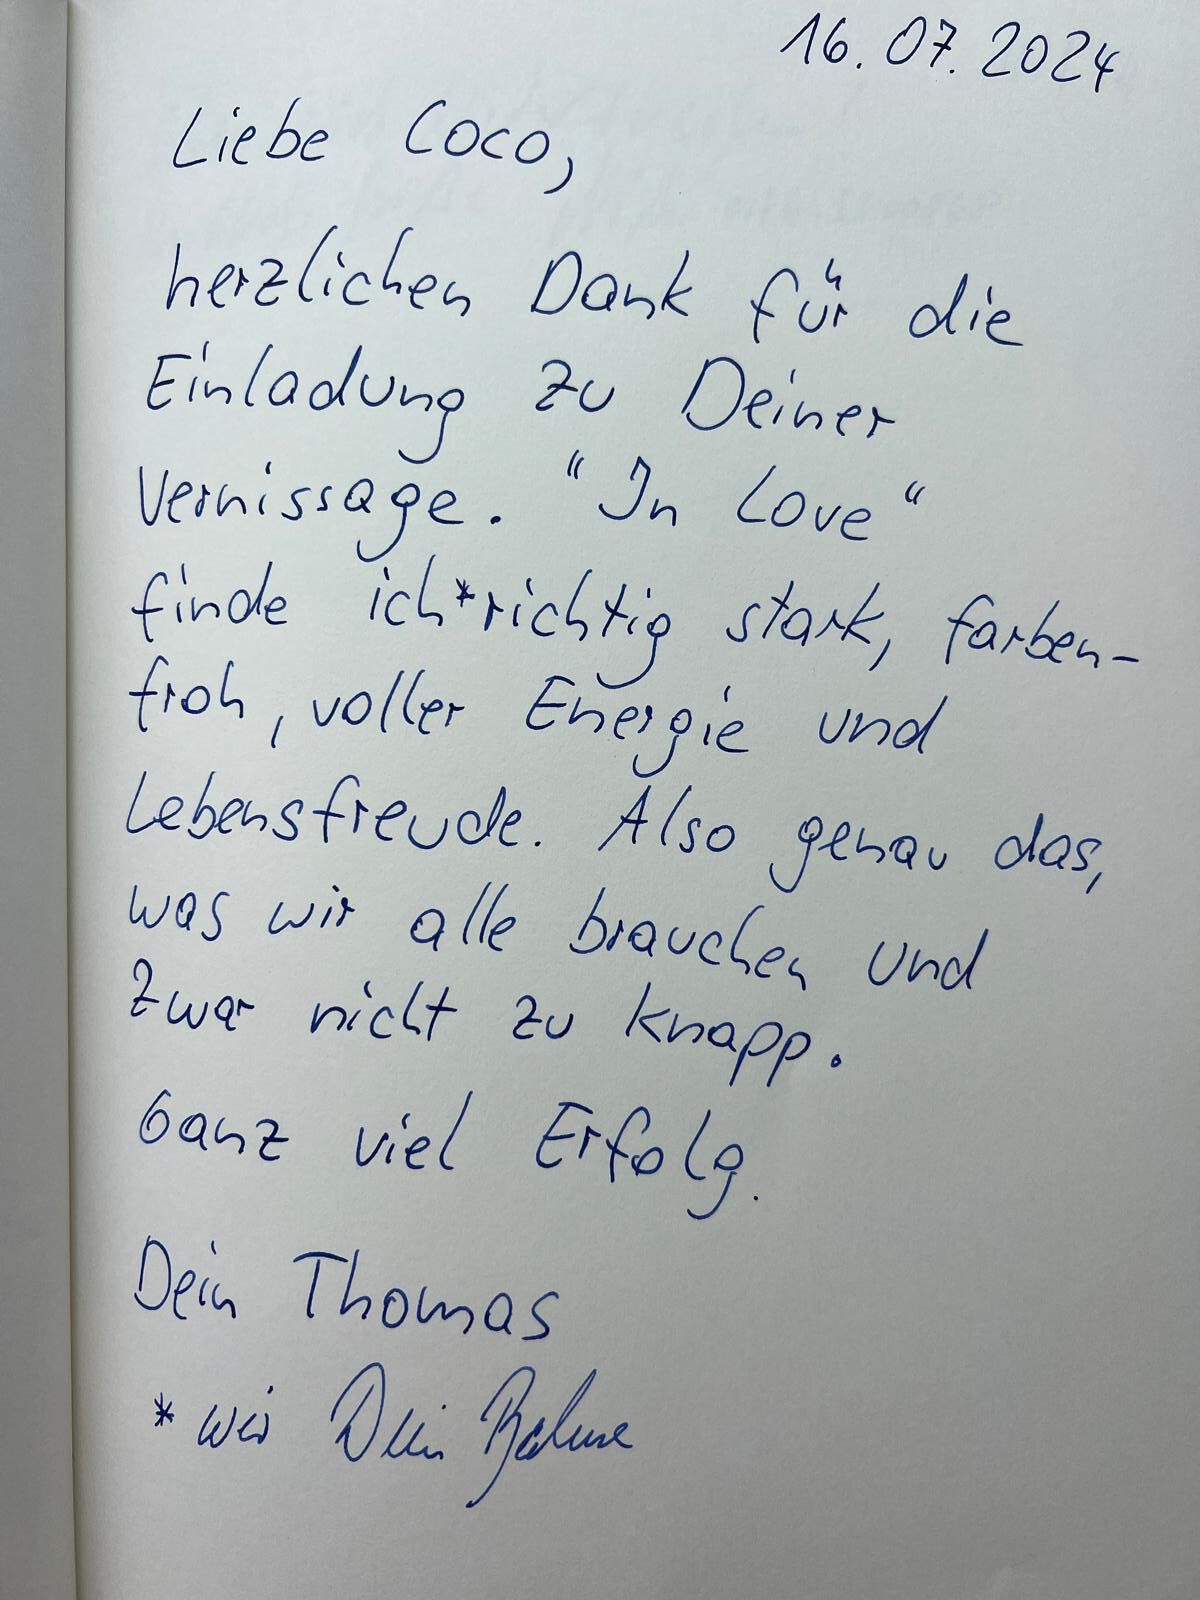 16.07.2024
Liebe Coco,
herzlichen Dank für die
Einladung zu Deiner
Vernissage. “In Love“
finde ich*richtig stark, farben-
froh, voller Energie und
Lebensfreude. Also genau das,
was wir alle brauchen und
zwar nicht zu knapp.
Ganz viel Erfolg.
Dein Thomas
* wir Dein